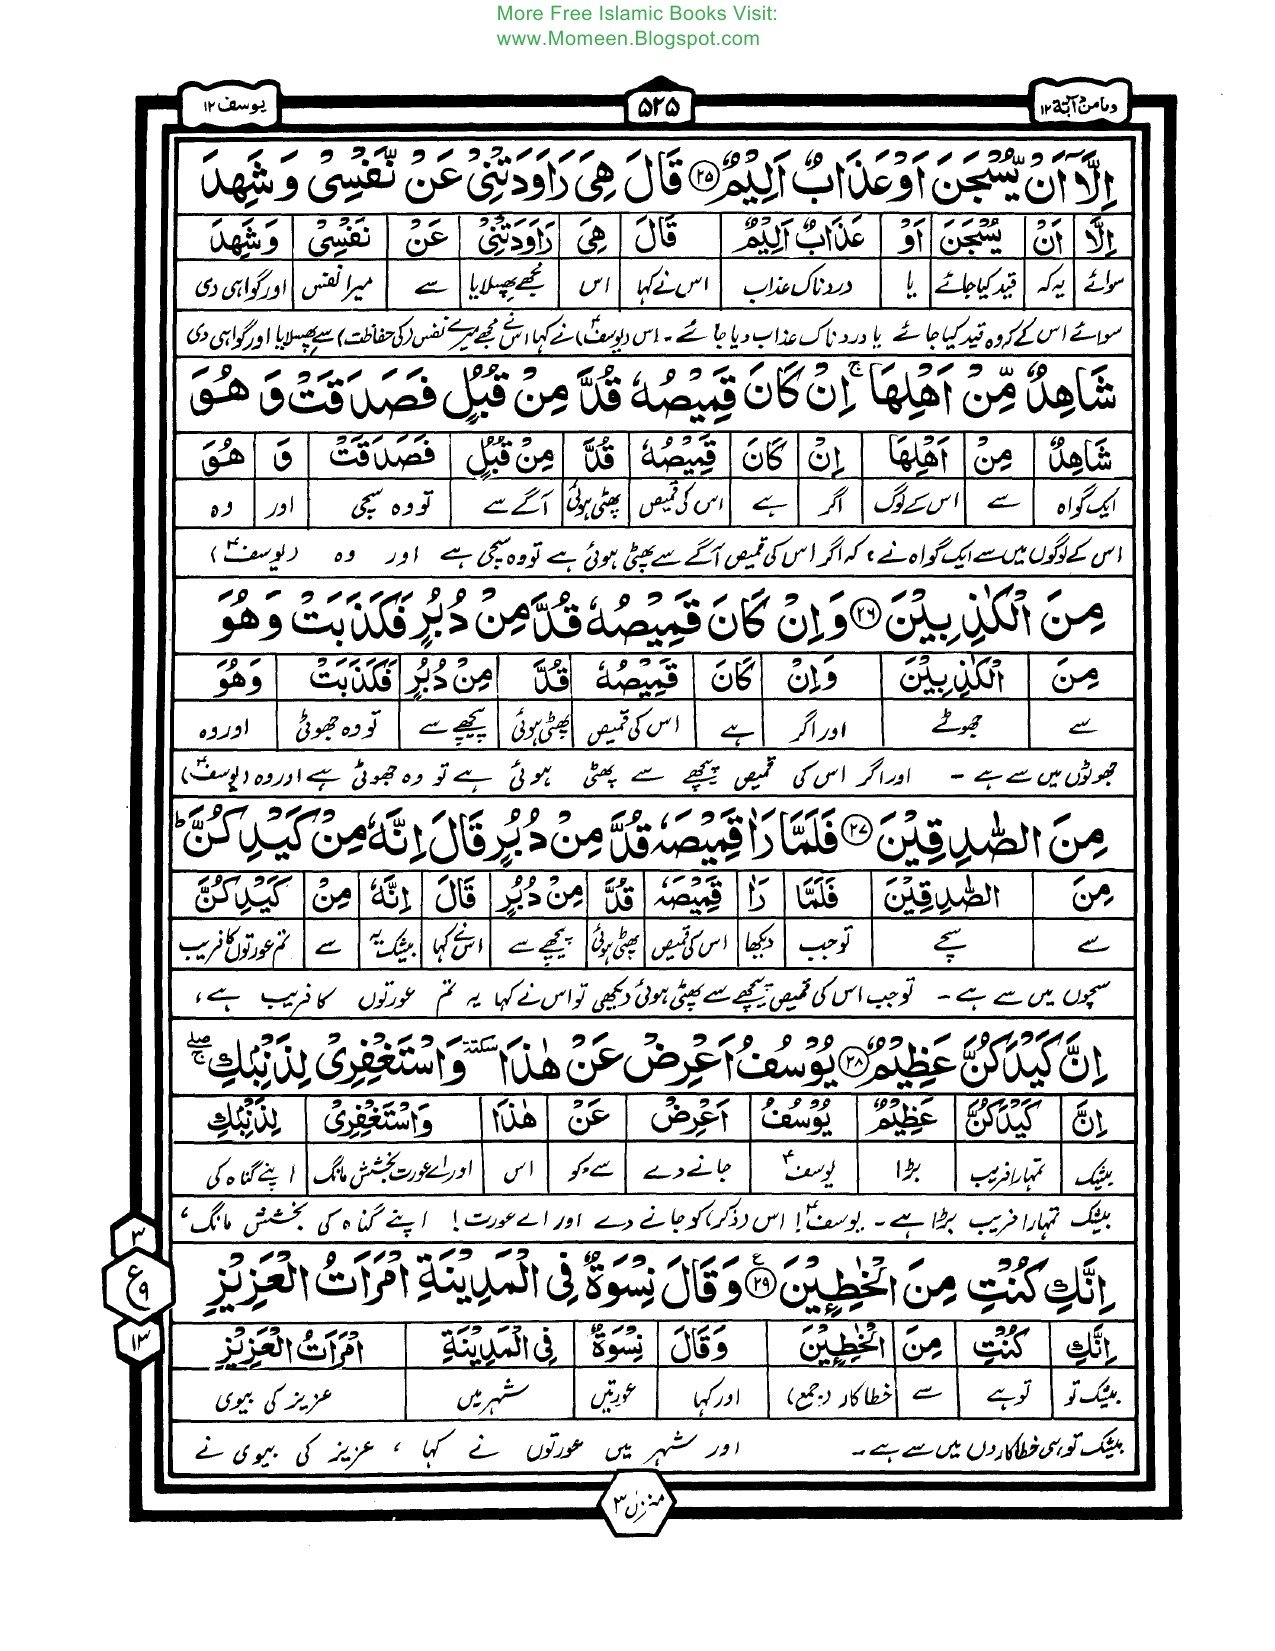 More Free Islamic Books Visit:
www.Momeen.Blogspot.com
ومامن آبة ۱۲ ۵۲۵ یوسف ۱۲
اِلَّاۤ اَنْ یُّسْجَنَ اَوْ عَذَابٌ اَلِیْمٌ ۲۵ قَالَ هِیَ رَاوَدَتْنِیْ عَنْ نَّفْسِیْ وَ شَهِدَ
اِلَّا اَنْ یُسْجَنَ اَوْ عَذَابٌ اَلِیْمٌ قَالَ هِیَ رَاوَدَتْنِیْ عَنْ نَفْسِیْ وَ شَهِدَ
سوائے یہ کہ قید کیا جائے یا دردناک عذاب اس نے کہا اس مجھے پھسلایا سے میرا نفس اور گواہی دی
سوائے اس کے کہ وہ قید کیا جائے یا دردناک عذاب دیا جائے ۔ اس (یوسفؑ) نے کہا اس نے مجھے میرے نفس (کی حفاظت) سے پھسلایا اور گواہی دی
شَاهِدٌ مِّنْ اَهْلِهَا ۚ اِنْ كَانَ قَمِیْصُهٗ قُدَّ مِنْ قُبُلٍ فَصَدَقَتْ وَ هُوَ
شَاهِدٌ مِنْ اَهْلِهَا اِنْ كَانَ قَمِیْصُهٗ قُدَّ مِنْ قُبُلٍ فَصَدَقَتْ وَ هُوَ
ایک گواہ سے اس کے لوگ اگر ہے اس کی قمیص پھٹی ہوئی آگے سے تو وہ سچی اور وہ
اس کے لوگوں میں سے ایک گواہ نے ، کہ اگر اس کی قمیص آگے سے پھٹی ہوئی ہے تو وہ سچی ہے اور وہ (یوسفؑ)
مِنَ الْكٰذِبِیْنَ ۲۶ وَ اِنْ كَانَ قَمِیْصُهٗ قُدَّ مِنْ دُبُرٍ فَكَذَبَتْ وَ هُوَ
مِنَ الْكٰذِبِیْنَ وَ اِنْ كَانَ قَمِیْصُهٗ قُدَّ مِنْ دُبُرٍ فَكَذَبَتْ وَ هُوَ
سے جھوٹے اور اگر ہے اس کی قمیص پھٹی ہوئی پیچھے سے تو وہ جھوٹی اور وہ
جھوٹوں میں سے ہے ۔ اور اگر اس کی قمیص پیچھے سے پھٹی ہوئی ہے تو وہ جھوٹی ہے اور وہ (یوسفؑ)
مِنَ الصّٰدِقِیْنَ ۲۷ فَلَمَّا رَاٰ قَمِیْصَهٗ قُدَّ مِنْ دُبُرٍ قَالَ اِنَّهٗ مِنْ كَیْدِكُنَّ ؕ
مِنَ الصّٰدِقِیْنَ فَلَمَّا رَاٰ قَمِیْصَهٗ قُدَّ مِنْ دُبُرٍ قَالَ اِنَّهٗ مِنْ كَیْدِكُنَّ
سے سچے تو جب دیکھا اس کی قمیص پھٹی ہوئی پیچھے سے اس نے کہا بیشک یہ سے تم عورتوں کا فریب
سچوں میں سے ہے ۔ تو جب اس کی قمیص پیچھے سے پھٹی ہوئی دیکھی تو اس نے کہا یہ تم عورتوں کا فریب ہے ،
اِنَّ كَیْدَكُنَّ عَظِیْمٌ ۲۸ یُوْسُفُ اَعْرِضْ عَنْ هٰذَا سكتة وَ اسْتَغْفِرِیْ لِذَنْۢبِكِ ۖۚ
اِنَّ كَیْدَكُنَّ عَظِیْمٌ یُوْسُفُ اَعْرِضْ عَنْ هٰذَا وَ اسْتَغْفِرِیْ لِذَنْۢبِكِ
بیشک تمہارا فریب بڑا یوسفؑ جانے دے سے ۔ کو اس اور اے عورت بخشش مانگ اپنے گناہ کی
بیشک تمہارا فریب بڑا ہے ۔ یوسفؑ! اس (ذکر) کو جانے دے اور اے عورت! اپنے گناہ کی بخشش مانگ ،
اِنَّكِ كُنْتِ مِنَ الْخٰطِـِٕیْنَ ۲۹ ع وَ قَالَ نِسْوَةٌ فِی الْمَدِیْنَةِ امْرَاَتُ الْعَزِیْزِ
اِنَّكِ كُنْتِ مِنَ الْخٰطِـِٕیْنَ وَ قَالَ نِسْوَةٌ فِی الْمَدِیْنَةِ امْرَاَتُ الْعَزِیْزِ
بیشک تو تو ہے سے خطاکار (جمع) اور کہا عورتیں شہر میں عزیز کی بیوی
بیشک تو ہی خطاکاروں میں سے ہے ۔ اور شہر میں عورتوں نے کہا ، عزیز کی بیوی نے
۳
ع ۹
۱۳
منزل ۳